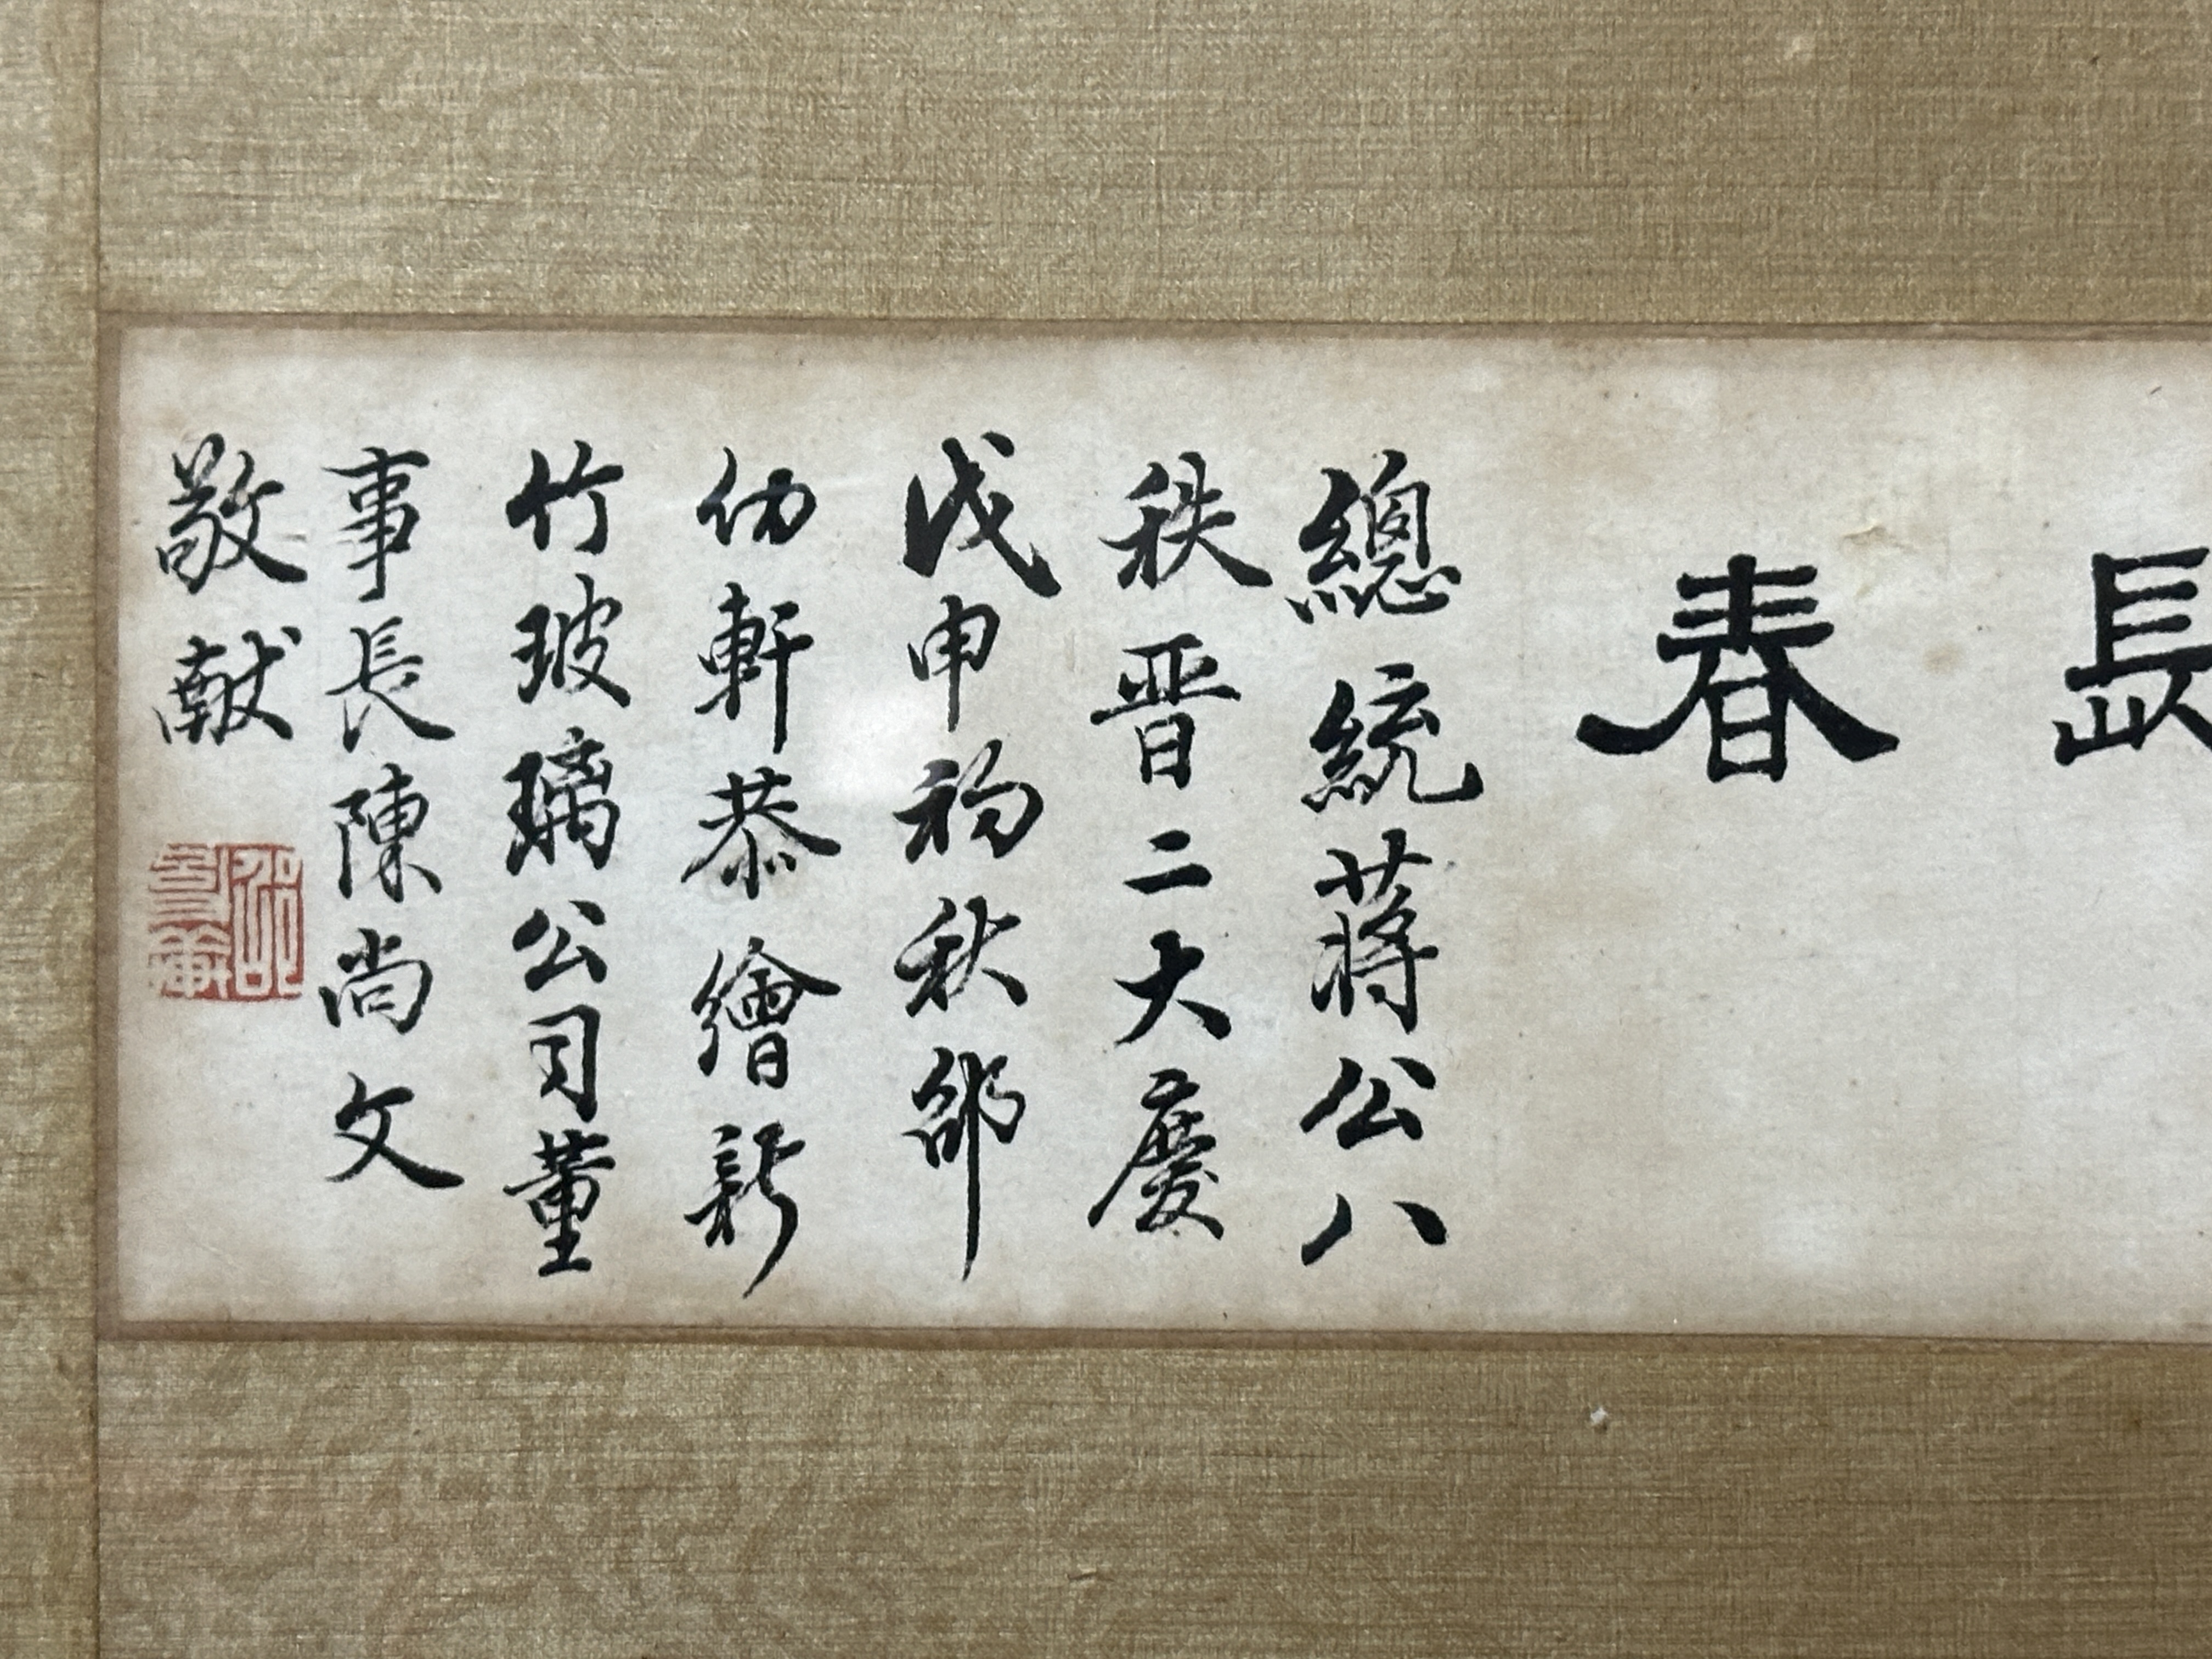 長春
總統蔣公八
秩晋二大慶
戊申初秋邵
幼軒恭繪新
竹玻璃公司董
事長陳尚文
敬献